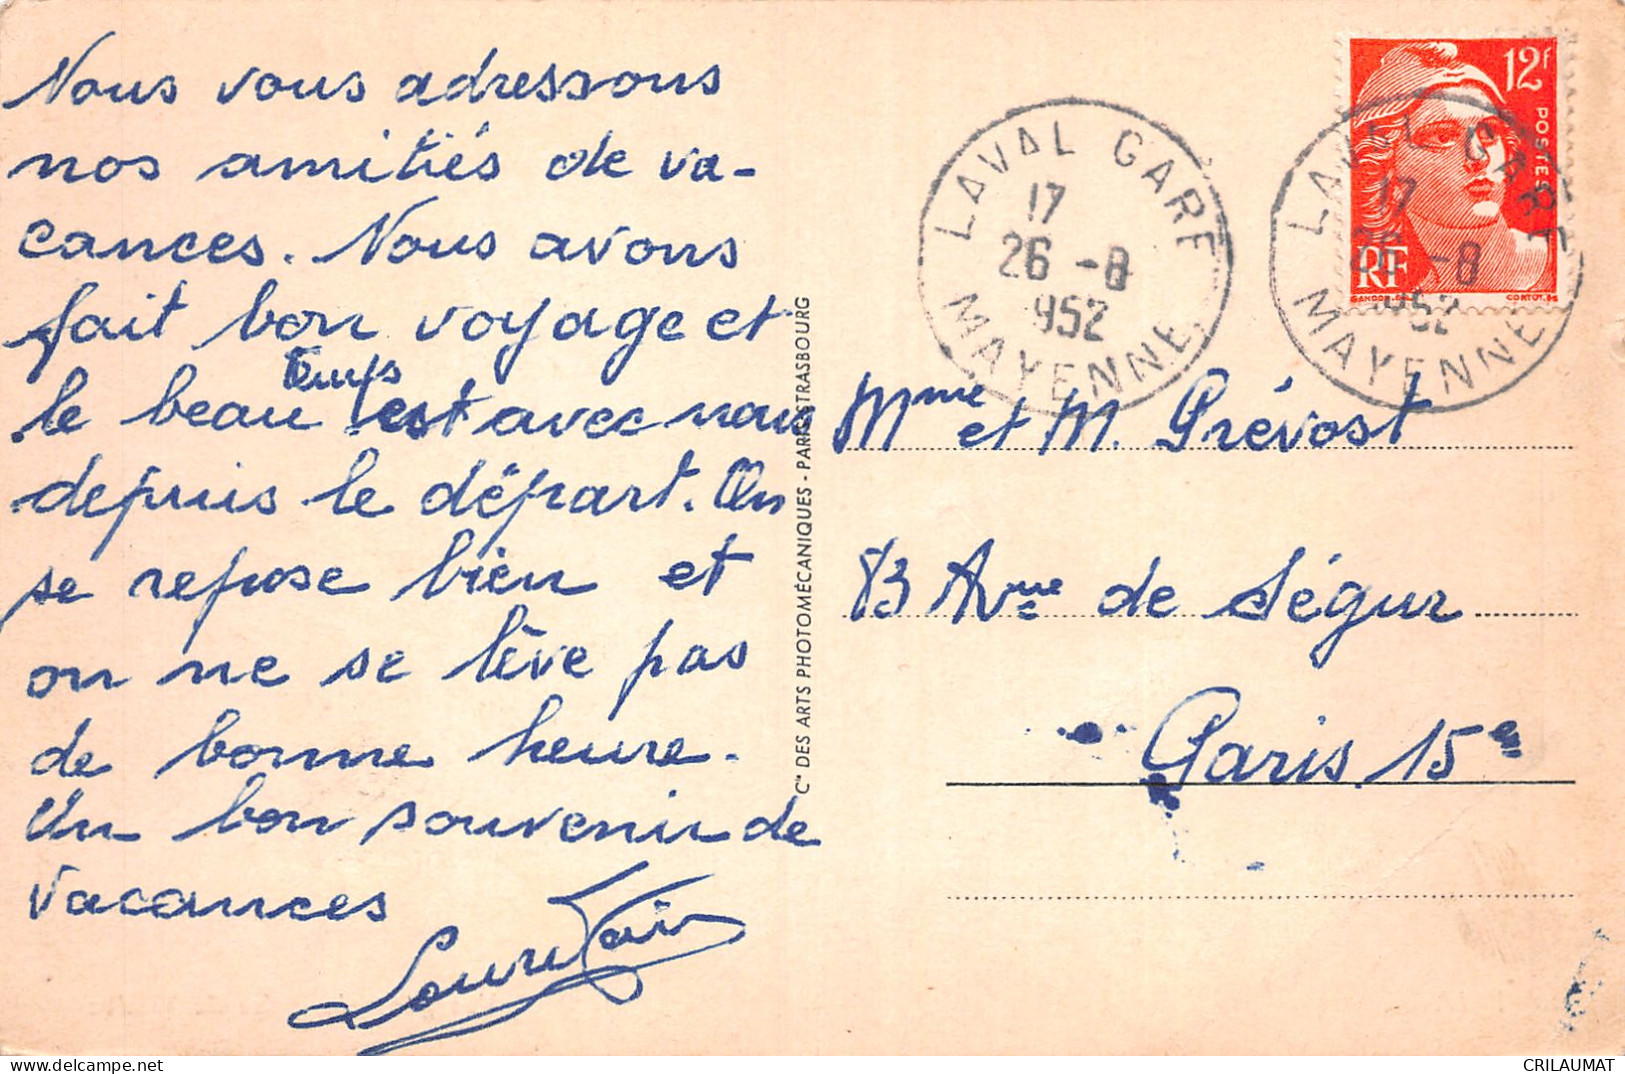 Nous vous adressons
nos amitiés de va-
cances. Nous avons
fait bon voyage et
le beau temps est avec nous
depuis le départ. On
se repose bien et
on ne se lève pas
de bonne heure.
Un bon souvenir de
vacances
Cie DES ARTS PHOTOMÉCANIQUES - PARIS-STRASBOURG
LAVAL GARE
17
26 -8
952
MAYENNE
12f
POSTES
RF
GANDON
CORTOT
LAVAL GARE
17
26 -8
952
MAYENNE
Mme et M. Prévost
83 Avnue de Ségur
Paris 15e
CRILAUMAT